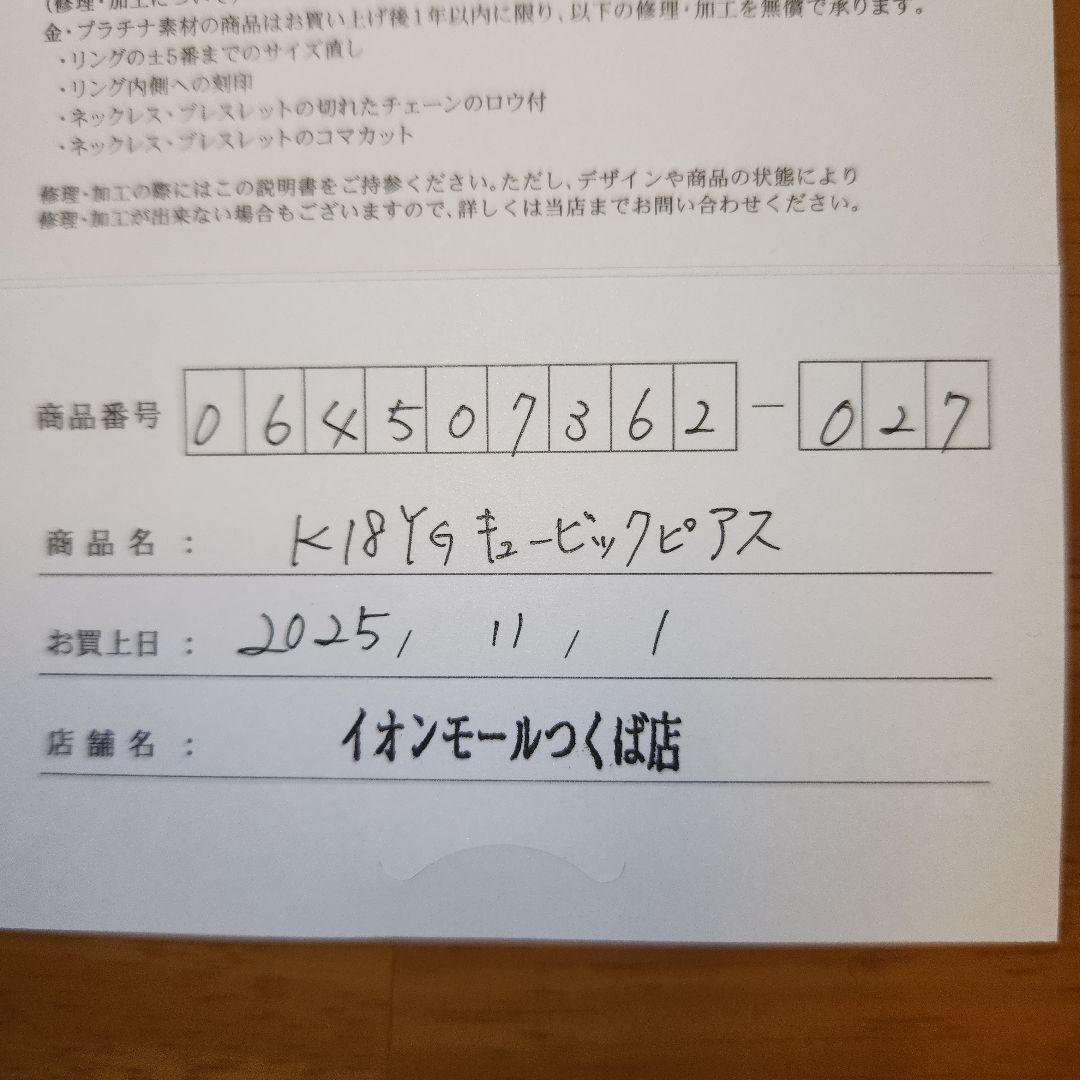 (修理・加工について)
金・プラチナ素材の商品はお買い上げ後1年以内に限り、以下の修理・加工を無償で承ります。
・リングの±5番までのサイズ直し
・リング内側への刻印
・ネックレス・ブレスレットの切れたチェーンのロウ付
・ネックレス・ブレスレットのコマカット
修理・加工の際にはこの説明書をご持参ください。ただし、デザインや商品の状態により
修理・加工が出来ない場合もございますので、詳しくは当店までお問い合わせください。
商品番号 064507362-027
商品名: K18YGキュービックピアス
お買上日: 2025, 11, 1
店舗名: イオンモールつくば店